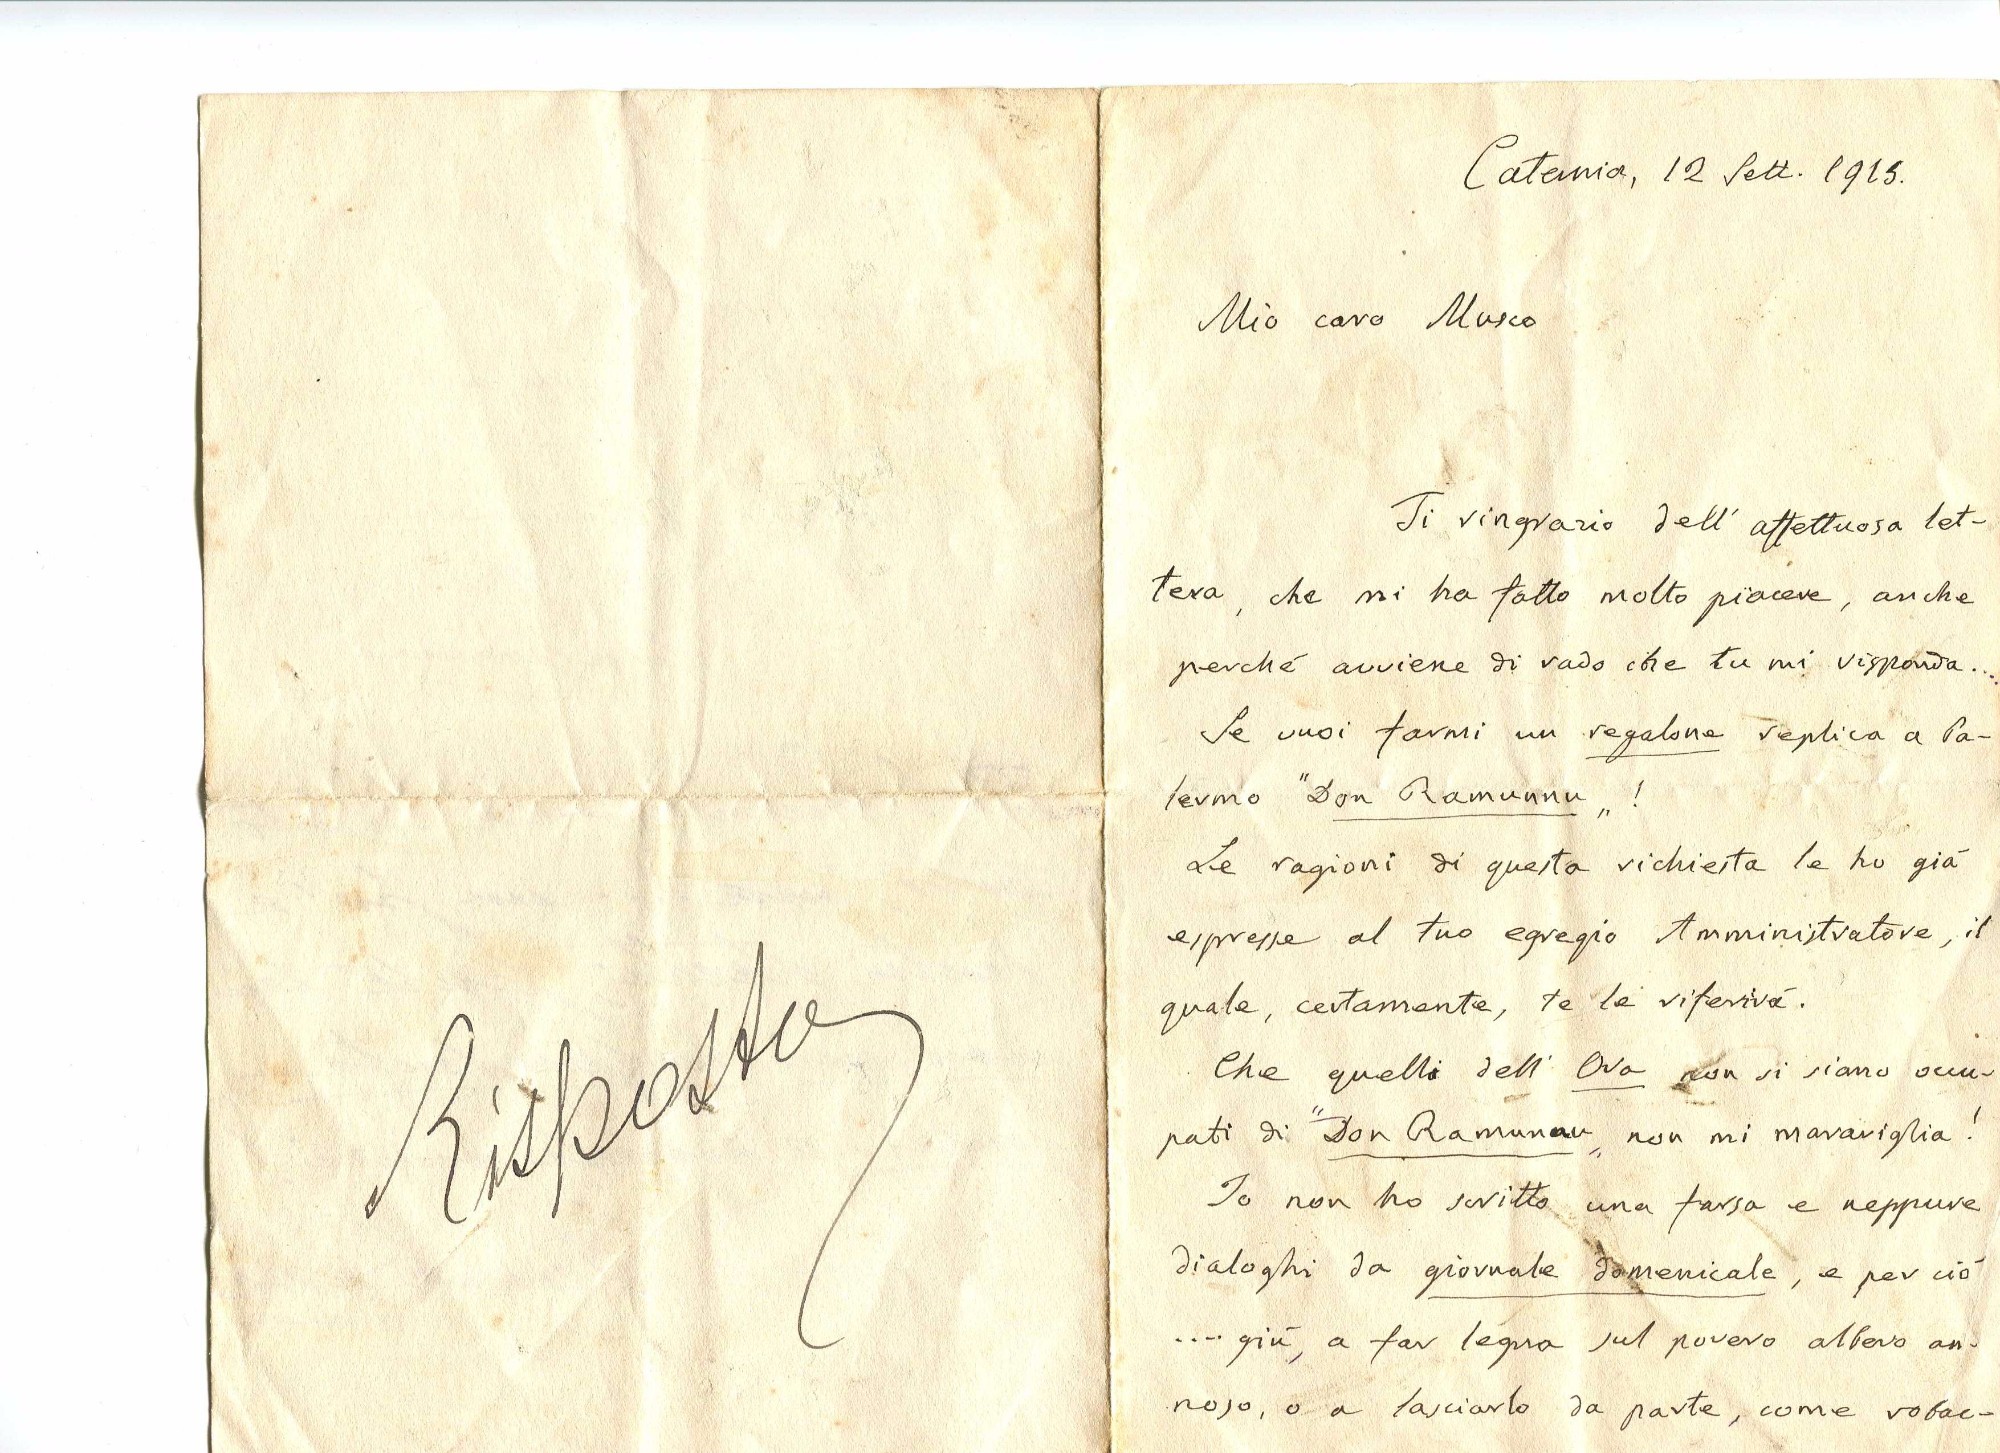 Risposta
Catania, 12 Sett. 1915.
Mio caro Musco
Ti ringrazio dell'affettuosa let-
tera, che mi ha fatto molto piacere, anche
perché avviene di rado che tu mi risponda...
Se vuoi farmi un regalone replica a Pa-
lermo "Don Ramunnu„!
Le ragioni di questa richiesta le ho già
espresse al tuo egregio Amministratore, il
quale, certamente, te le riferirà.
Che quelli dell'Ora non si siano occu-
pati di "Don Ramunnu„ non mi maraviglia!
Io non ho scritto una farsa e neppure
dialoghi da giornale domenicale, e per ciò
.... giù, a far legna sul povero albero an-
noso, o a lasciarlo da parte, come robac-